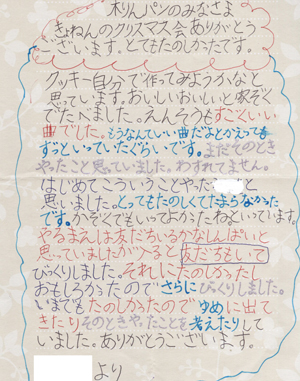 木りんパンのみなさま
きょねんのクリスマス会ありがとう
ございます。とてもたのしかったです。
クッキー自分で作ってみようかなと
思っています。おいしいおいしいと家ぞく
でたべました。えんそうもすごくいい
曲でした。もうなんていい曲だよとかえっても
ずっといっていたぐらいです。まだそのとき
やったこと思っていました。わすれてません。
はじめてこういうことやった と
思いました。とってもたのしくてたまらなかった
です。かぞくでもいってよかったねといっています。
やるまえは友だちいるかなしんぱいと
思っていましたが入ると友だちもいて
びっくりしました。それにたのしかったし
おもしろかったのでさらにびっくりしました。
いまでもたのしかったのでゆめに出て
きたりそのときやったことを考えたりして
いました。ありがとうございます。
より